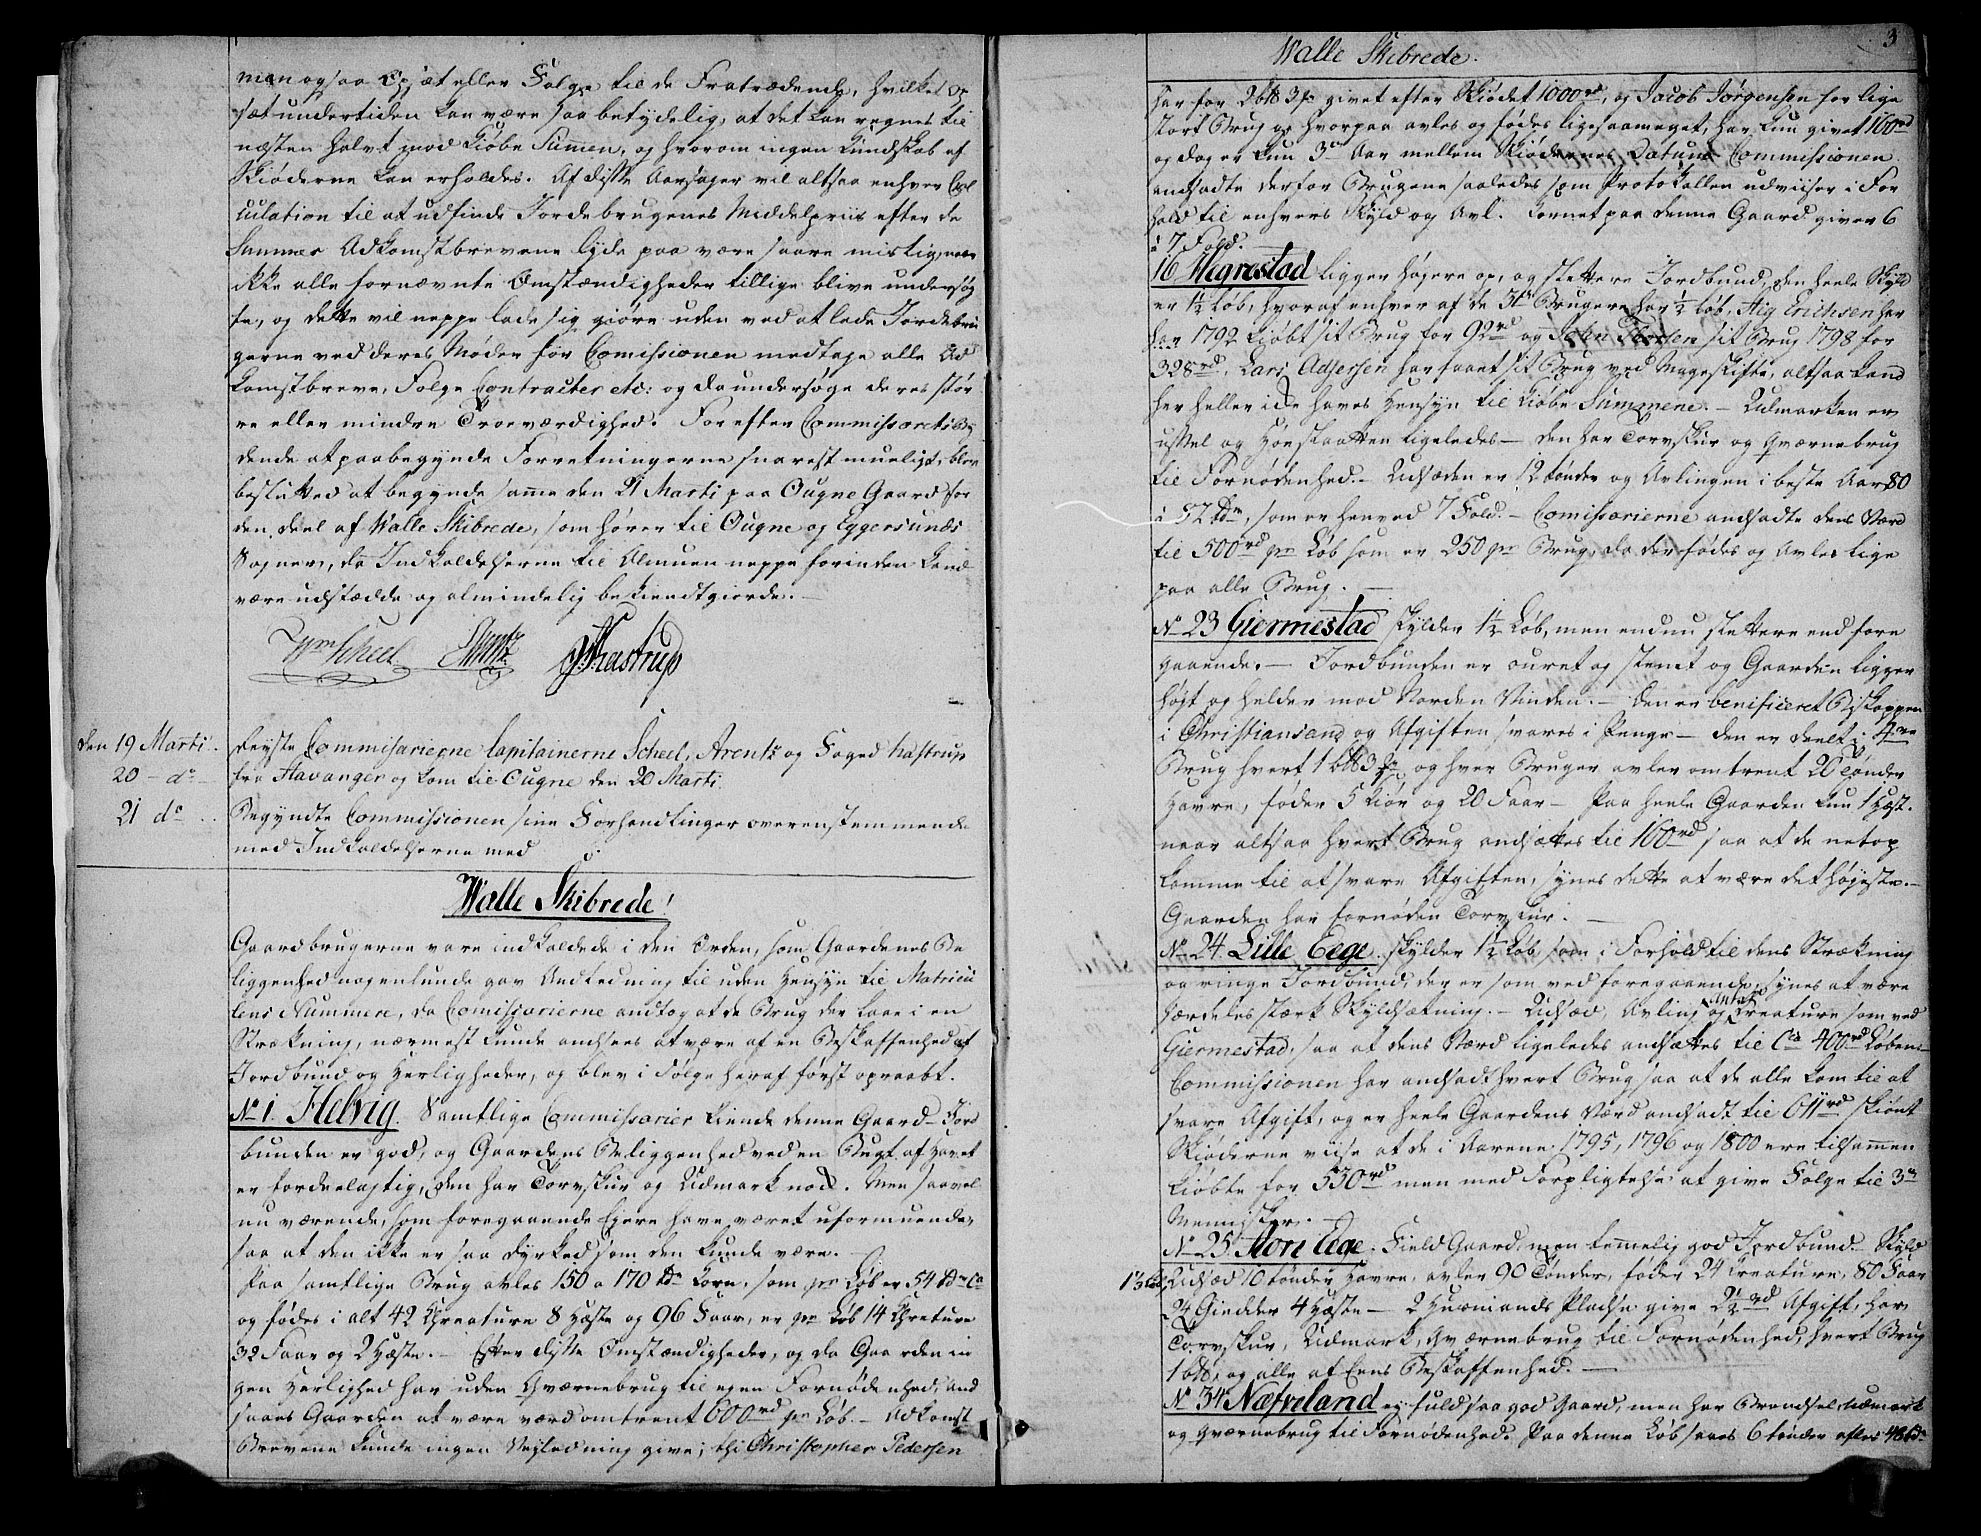 men ogsaa Opsæt eller Følge til de Fratrædende, hvilket Op
sæt undertiden kan være saa betydelig, at det kan regnes til
næsten halvt mod Kiøbe Summen, og hvorom ingen Kundskab af
Skiøderne kan erholdes. Af disse Aarsager vil altsaa enhver Cal
culation til at udfinde Jordebrugenes Middelpriis efter de
Summer Adkomstbrevene lyde paa være saare mislig, naar
ikke alle fornævnte Omstændigheder tillige blive undersøg
te, og dette vil neppe lade sig giøre uden ved at lade Jordebru
gerne ved deres Møder for Comissionen medtage alle Ad
komstbreve, Følge Contracter etc: og da undersøge deres stør
re eller mindre Troeværdighed. For efter Commissoriets By
dende at paabegynde Forretningerne snarest mueligt, blev
beslutted at begynde samme den 21 Marti paa Ougne Gaard for
den deel af Walle Skibrede, som hører til Ougne og Eggersunds
Sogner, da Indkaldelserne til Almuen neppe forinden kand
være udstædde og almindelig bekiendtgiorde. —
Scheel Arentz Kastrup
den 19 Marti Reyste Commisarierne Capitainerne Scheel, Arentz og Foged Kastrup
20 - do fra Stavanger og kom til Ougne den 20 Marti.
21 do Begyndte Commissionen sine Forhandlinger overenstemmende
med Indkaldelserne med
Walle Skibrede!
Gaardbrugerne vare indkaldede i den Orden, som Gaardenes Be
liggenhed nogenlunde gav Andledning til uden Hensyn til Matricu
lens Numere, da Comissarierne andtog at de Brug der laae i en
Strækning, nærmest kunde andsees at være af en Beskaffenhed af
Jordbund og Herligheder, og blev i Følge heraf først opraabt.
No 1. Helvig. Samtlige Commissarier kiende denne Gaard - Jord
bunden er god, og Gaardens Beliggenhed ved en Bugt af Havet
er fordeelagtig, den har Torvskur og Udmark nok. Men saavel
nu værende, som foregaaende Ejere have været uformuende,
saa at den ikke er saa dyrked som den kunde være. —
Paa samtlige Brug avles 150 a 170 tdr Korn, som pr Løb er 54 tdr Ca
og fødes i alt 42 Kreature 8 Heste og 96 Faar, er pr Løb 14 Kreture
32 Faar og 2 Heste. — Efter disse Omstændigheder, og da Gaarden in
gen Herlighed har uden Qværnebrug til egen Fornødenhed, and
saaes Gaarden at være værd omtrent 600 rd pr Løb. — Adkomst
Brevene kunde ingen Veyledning give; thi Christopher Pedersen
3
Walle Skibrede.
har for 2 btt 3 fr givet efter Skiødet 1000 rd, og Jacob Jørgensen for lige
stort Brug og hvorpaa avles og fødes ligesaameget, har kun givet 160 rd
og dog er kun 3 Aar mellem Skiødernes Datum Commissionen
andsadte derfor Brugene saaledes som Protokollen udviiser i For
hold til enhvers Skyld og Avl. Kornet paa denne Gaard giver 6
a 7 Fold.
16 Hegrestad ligger højere op, og slettere Jordbund, den heele Skyld
er 1½ Løb, hvoraf enhver af de 3de Brugere har ½ Løb, Stig Erichsen har
har 1792 kiøbt sit Brug for 92 rd og Søren Thorsen sit Brug 1798 for
328 rd. Lars Adsersen har faaet sit Brug ved Mageskifte, altsaa kand
her heller icke haves Hensyn til Kiøbe Summene. — Udmarken er
ussel og Høeslaatten ligeledes — den har Torvskur og Qværnebrug
til Fornødenhed. — Udsæden er 12 tønder og Avlingen i beste Aar 80
a 52 tdr, som er henved 7 Fold. — Comissarierne andsadte dens Værd
til 500 rd pr Løb som er 250 pr Brug, da der fødes og Avles lige
paa alle Brug. —
No 23 Giermestad skylder 1½ Løb, men endnu slettere end fore
gaaende. — Jordbunden er ouret og steenet og Gaarden ligger
højt og helder mod Norden Vinden. — Den er benificeret Biskoppen
i Christiansand og Afgiften svares i Penge — den er deelt i 4re
Brug hvert 1 btt 3 fr og hver Bruger avler omtrent 20 tønder
Havre, føder 5 Kiør og 20 Faar — Paa heele Gaarden kun 1 Hæst.
naar altsaa hvert Brug andsættes til 160 rd saa at de netop
komme til at svare Afgiften, synes dette at være det højeste. —
Gaarden har fornøden Torvskur. —
No 24. Lille Eege. skylder 1½ Løb som i Forhold til dens Strækning
og ringe Jordbund, der er som ved foregaaende, synes at være
særdeles stærk Skyldsætning. — Udsæd, Avling og Antal Creature som ved
Giermestad, saa at dens Værd ligeledes andsættes til Ca 400 rd Løbene —
Commissionen har andsadt hvert Brug saa at de alle kom til at
svare Afgift, og er heele Gaardens Værd andsadt til 611 rd skiønt
Skiøderne viise at de i Aarene 1795, 1796 og 1800 ere tilsammen
kiøbte for 530 rd men med Forpligtelse at give Følge til 3de
Mennisker. —
No 25 Store Eege. Field Gaard, men temelig god Jordbund. Skyld
1½ Løb, Udsæd 10 tønder Havre, avler 90 Tønder, føder 24 Creature, 80 Faar
24 Giedder 4 Hæste — 2 Huusmands Pladse give 2½ rd Afgift, har
Torvskur, Udmark, Qværnebrug til Fornødenhed, hvert Brug
1 btt, og alle af Eens Beskaffenhed. —
No 34 Næfveland ey fuld saa god Gaard, men har Brendsel, udmark
og Qværnebrug til Fornødenhed. Paa denne Løb saaes 6 tønder afles 48 tdr